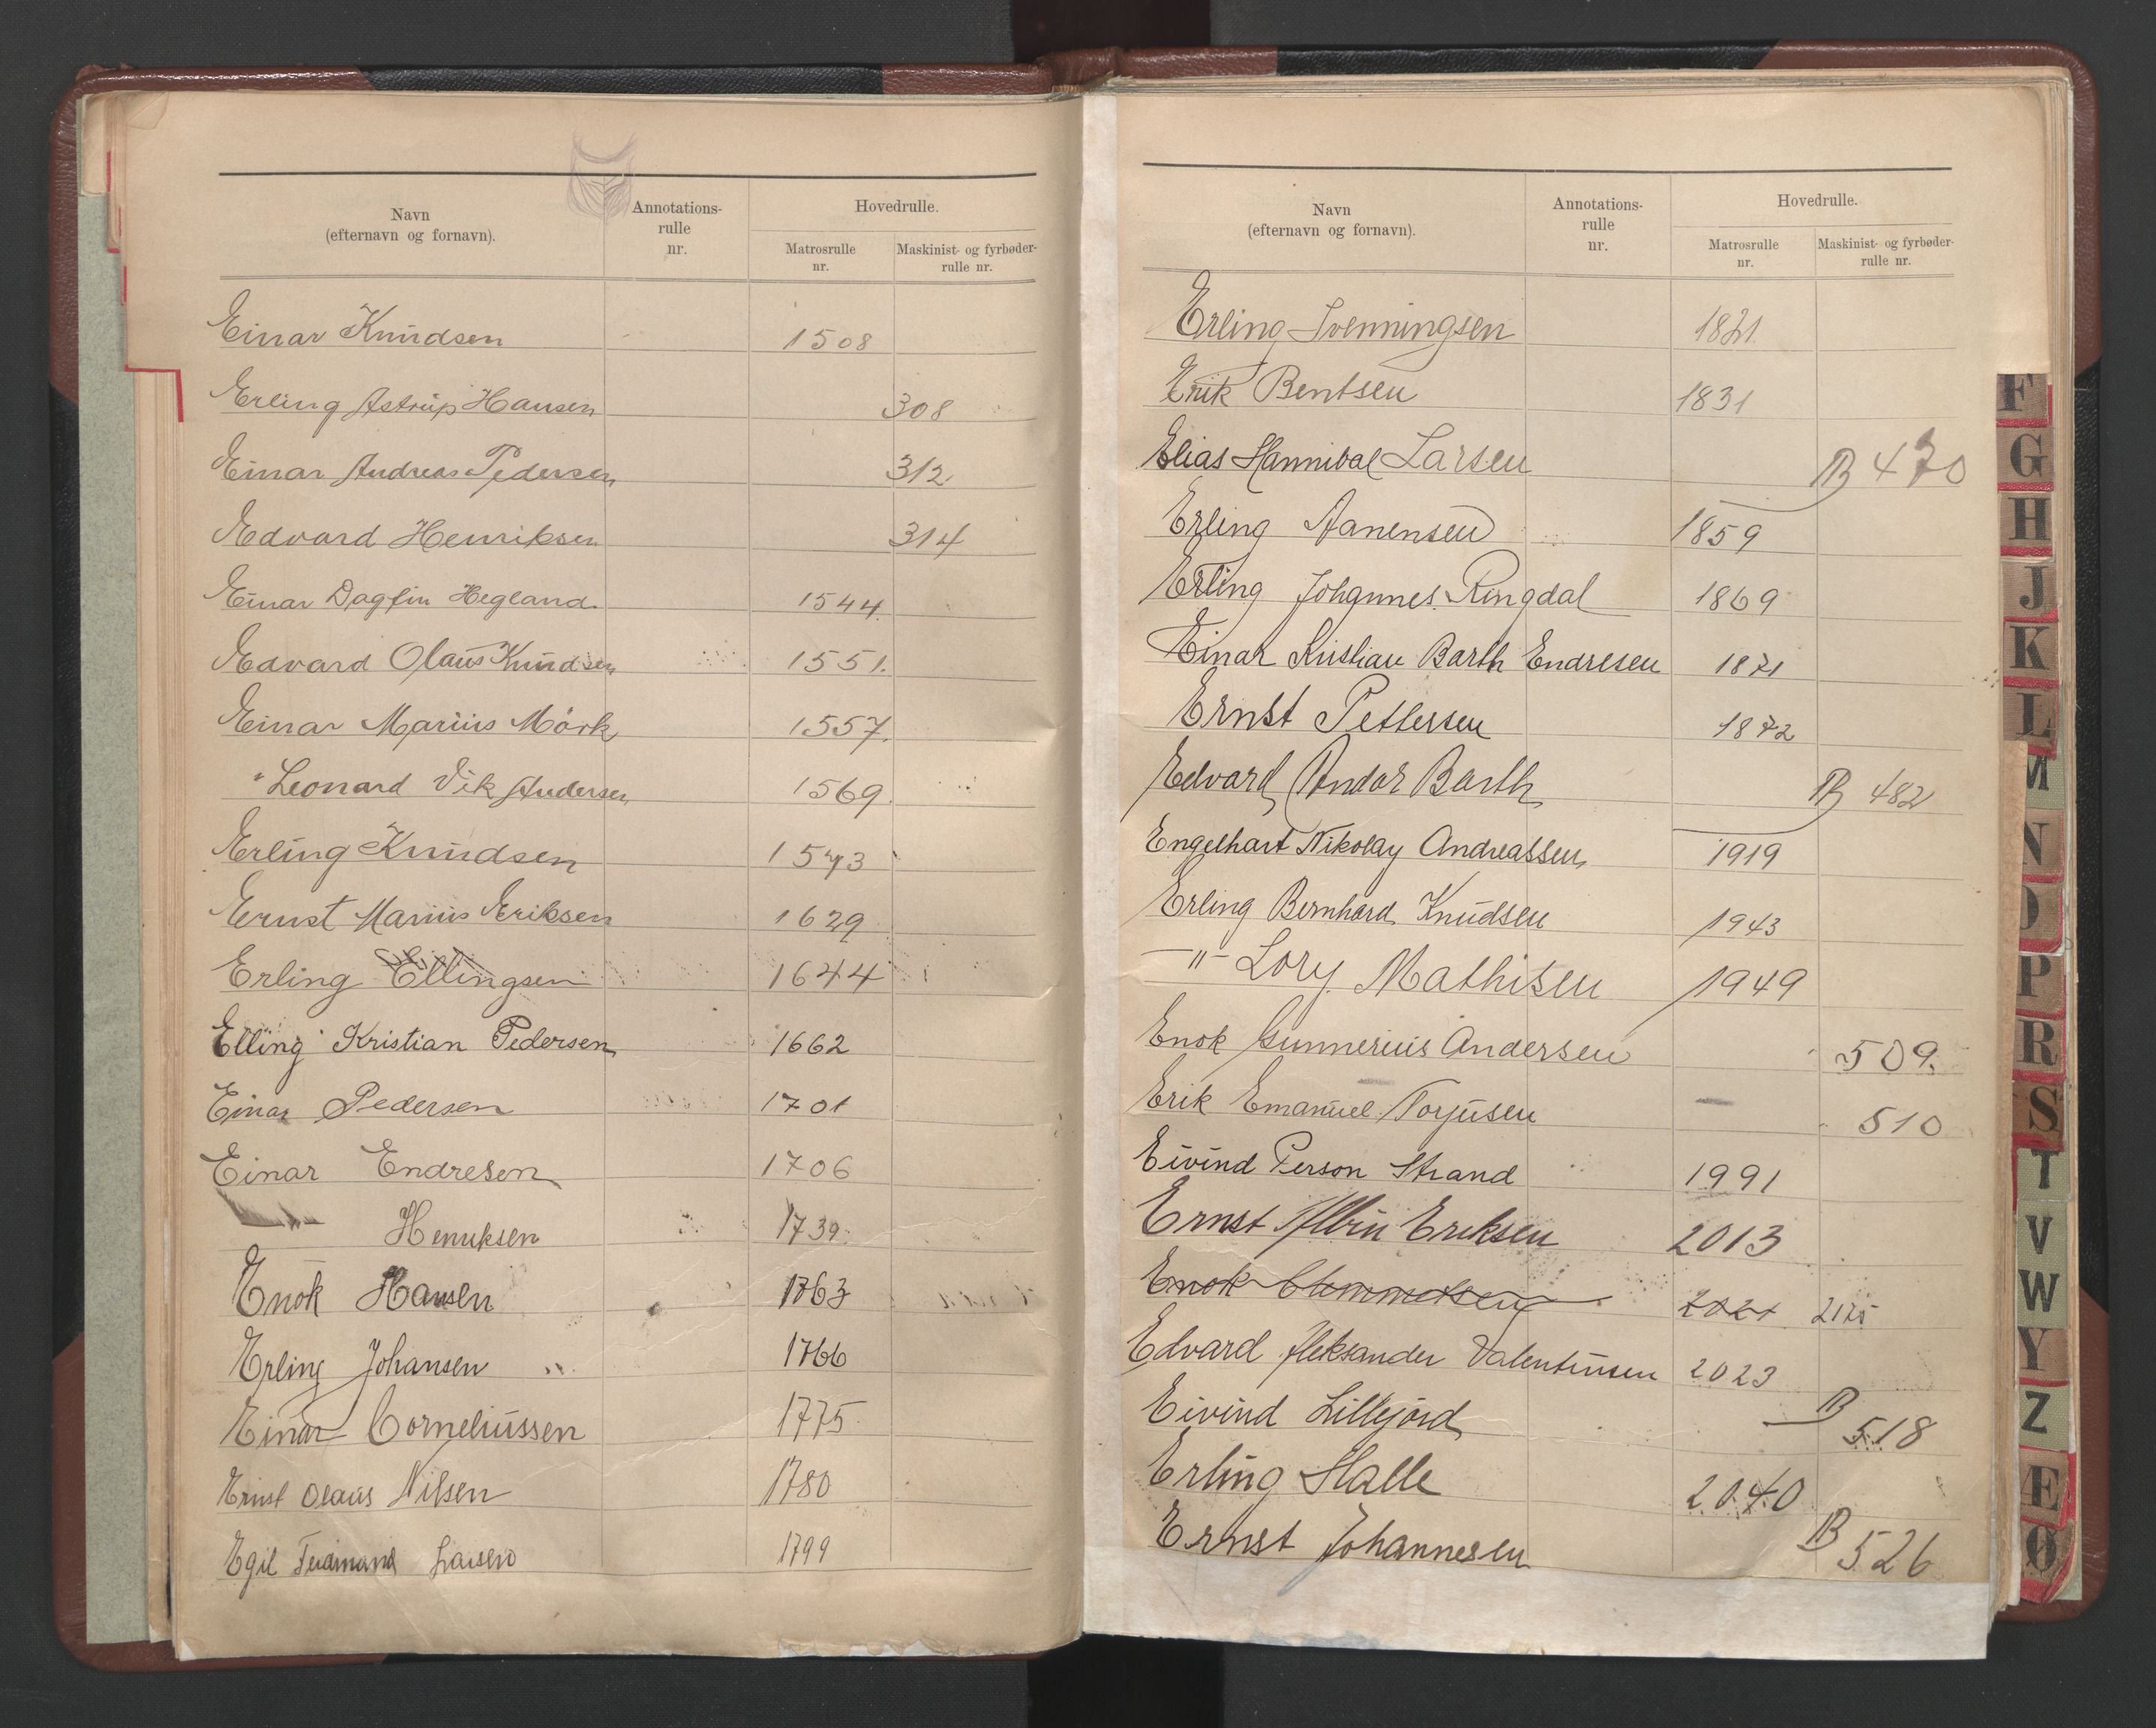 Navn
(efternavn og fornavn).
Annotations-
rulle
nr.
Hovedrulle.
Matrosrulle
nr.
Maskinist- og fyrbøder-
rulle nr.
Einar Knudsen 1508
Erling Astrup Hansen 308
Einar Andreas Pedersen 312
Edvard Henriksen 314
Einar Dagfin Hegland. 1544.
Edvard Olaus Knudsen 1551.
Einar Marius Mörk 1557.
" Leonard Vik Andersen 1569
Erling Knudsen 1573
Ernst Marius Eriksen 1629
Erling Ellingsen 1644
Elling Kristian Pedersen 1662
Einar Pedersen 1701
Einar Endresen 1706
—"— Henriksen 1739.
Enok Hansen 1763
Erling Johansen 1766
Einar Corneliussen 1775
Ernst Olaus Nilsen 1780
Egil Ferdinand Larsen 1799
Navn
(efternavn og fornavn).
Annotations-
rulle
nr.
Hovedrulle.
Matrosrulle
nr.
Maskinist- og fyrbøder-
rulle nr.
Erling Svenningsen 1821.
Erik Bentsen 1831
Elias Hannibal Larsen B 470
Erling Aanensen 1859
Erling Johannes Ringdal 1869
Einar Kristian Barth Endresen 1871
Ernst Pettersen 1872
Edvard Andor Barth B 482
Engelhart Nikolay Andreassen 1919
Erling Bernhard Knudsen 1943
—"— Lory Mathisen 1949
Enok Gunnerius Andersen 509.
Erik Emanuel Torjusen — 510
Eivind Person Strand 1991
Ernst Albin Eriksen 2013
Enok Clemmetsen 2021 2125
Edvard Aleksander Valentinsen 2023
Eivind Lillejord B 518
Erling Halle 2040
Ernst Johannesen B 526
F
G
H
J
K
L
M
N
O
P
R
S
T
V
W
Y
Z
Æ
Ø